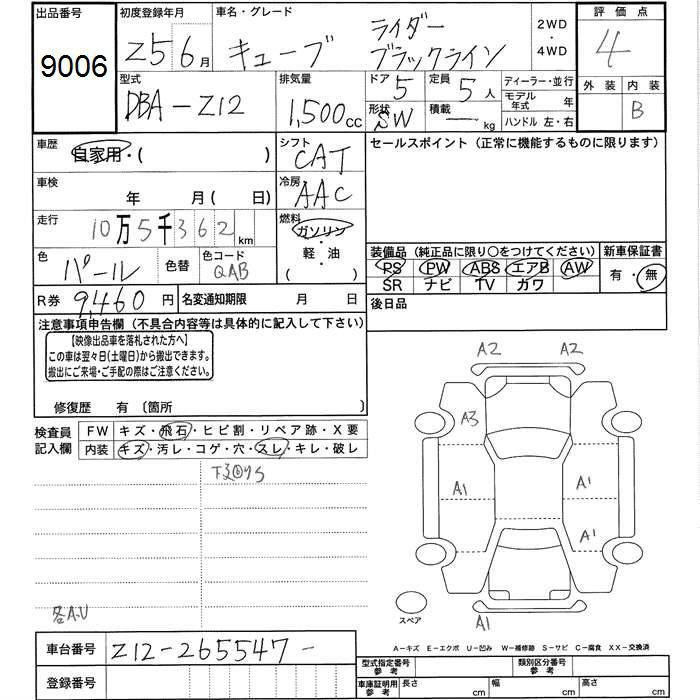 出品番号 初度登録年月 車名・グレード 2WD・4WD 評価点
9006 25 6月 キューブ ライダー ブラックライン 4
型式 排気量 ドア 定員 ディーラー・並行 外装 内装
DBA-Z12 1,500cc 5 5人 モデル年式 年 B
形状 SW 積載 ー kg ハンドル 左・右
車歴 自家用・( ) シフト CAT セールスポイント(正常に機能するものに限ります)
車検 年 月( 日) 冷房 AAC
走行 10万5千362km 燃料 ガソリン・軽・油 ( )
色 パール 色替 色コード QAB
装備品(純正品に限り○をつけてください) 新車保証書
PS PW ABS エアB AW 有・無
SR ナビ TV カワ
R券 9,460円 名変通知期限 月 日 後日品
注意事項申告欄(不具合内容等は具体的に記入して下さい)
【映像出品車を落札された方へ】
この車は翌々日(土曜日)から搬出できます。
搬出にご来場・ご手配の際はご注意ください。
修復歴 有〔箇所 〕
検査員記入欄 FW キズ・飛石・ヒビ割・リペア跡・X要
内装 キズ・汚レ・コゲ・穴・スレ・キレ・破レ
A2 A2
A3
A1 A1
A1
A1
各A.U
スペア
A-キズ E-エクボ U-凹み W-補修跡 S-サビ C-腐食 XX-交換済
車台番号 Z12-265547-
登録番号
型式指定番号参考 類別区分番号参考
車庫証明用参考 長さ cm 幅 cm 高さ cm